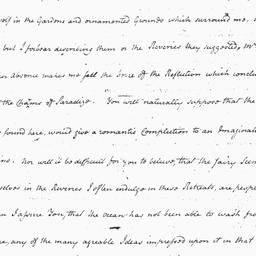 self in the Gardens and ornamented Grounds which surround me. 
but I forbear describing them or the Reveries they suggested, Mr
absence makes me feel the force of the Reflection which
the Charms of Paradise. You will naturally suppose that the
found here, would give a romantic Complection to an
Nor will it be difficult for you to believe, that the fairy
in the Reveries I often indulge in these Retreats, are,
I assure You, that the ocean has not been able to wash
any of the many agreable Ideas impressed upon it in that